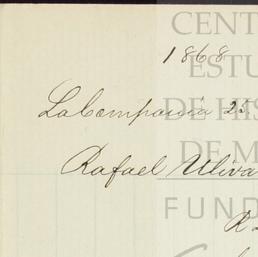 CENT
1868
ESTU
La Compania 25
DE HIS
DE M
Rafael Uliva
FUND
R